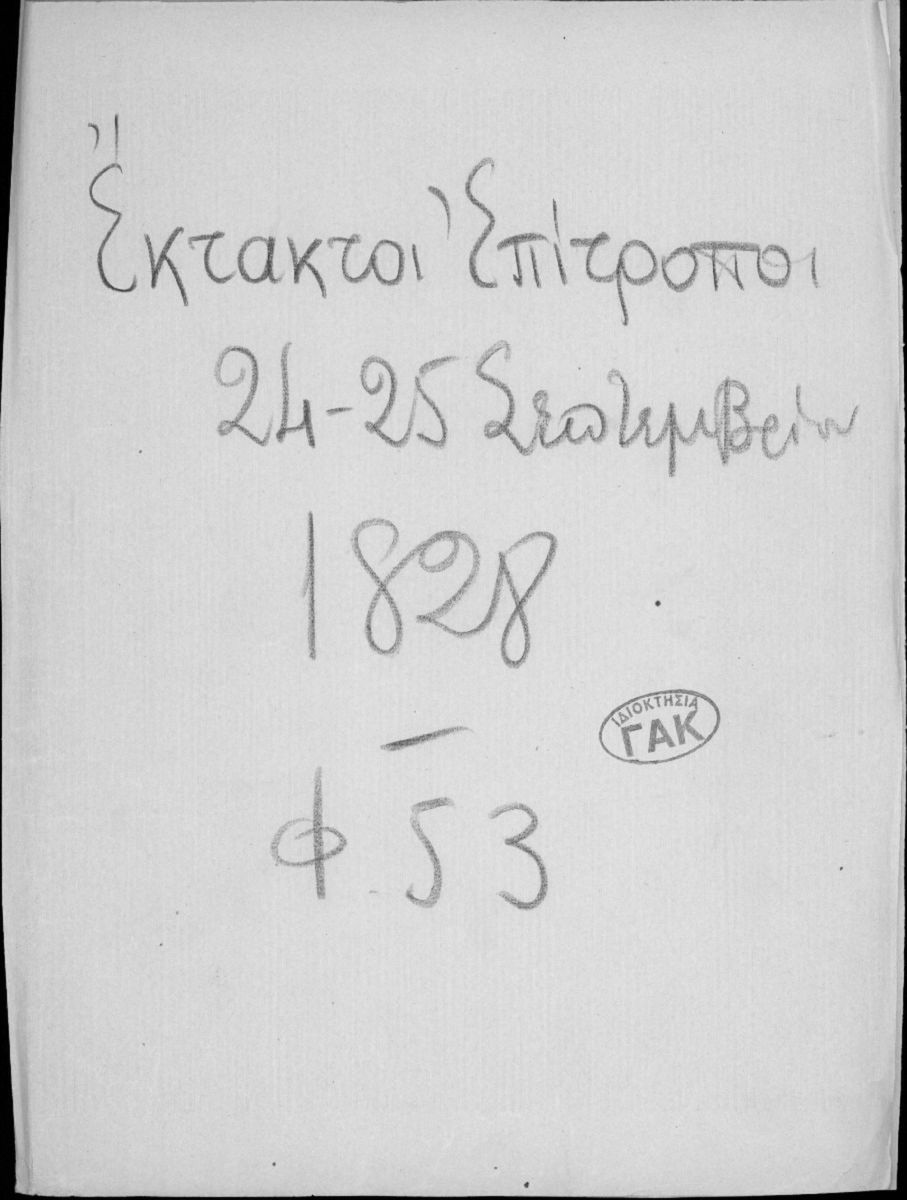 Ἔκτακτοι Ἐπίτροποι
24-25 Σεπτεμβρίου
1828
—
Φ 53
ΙΔΙΟΚΤΗΣΙΑ
ΓΑΚ